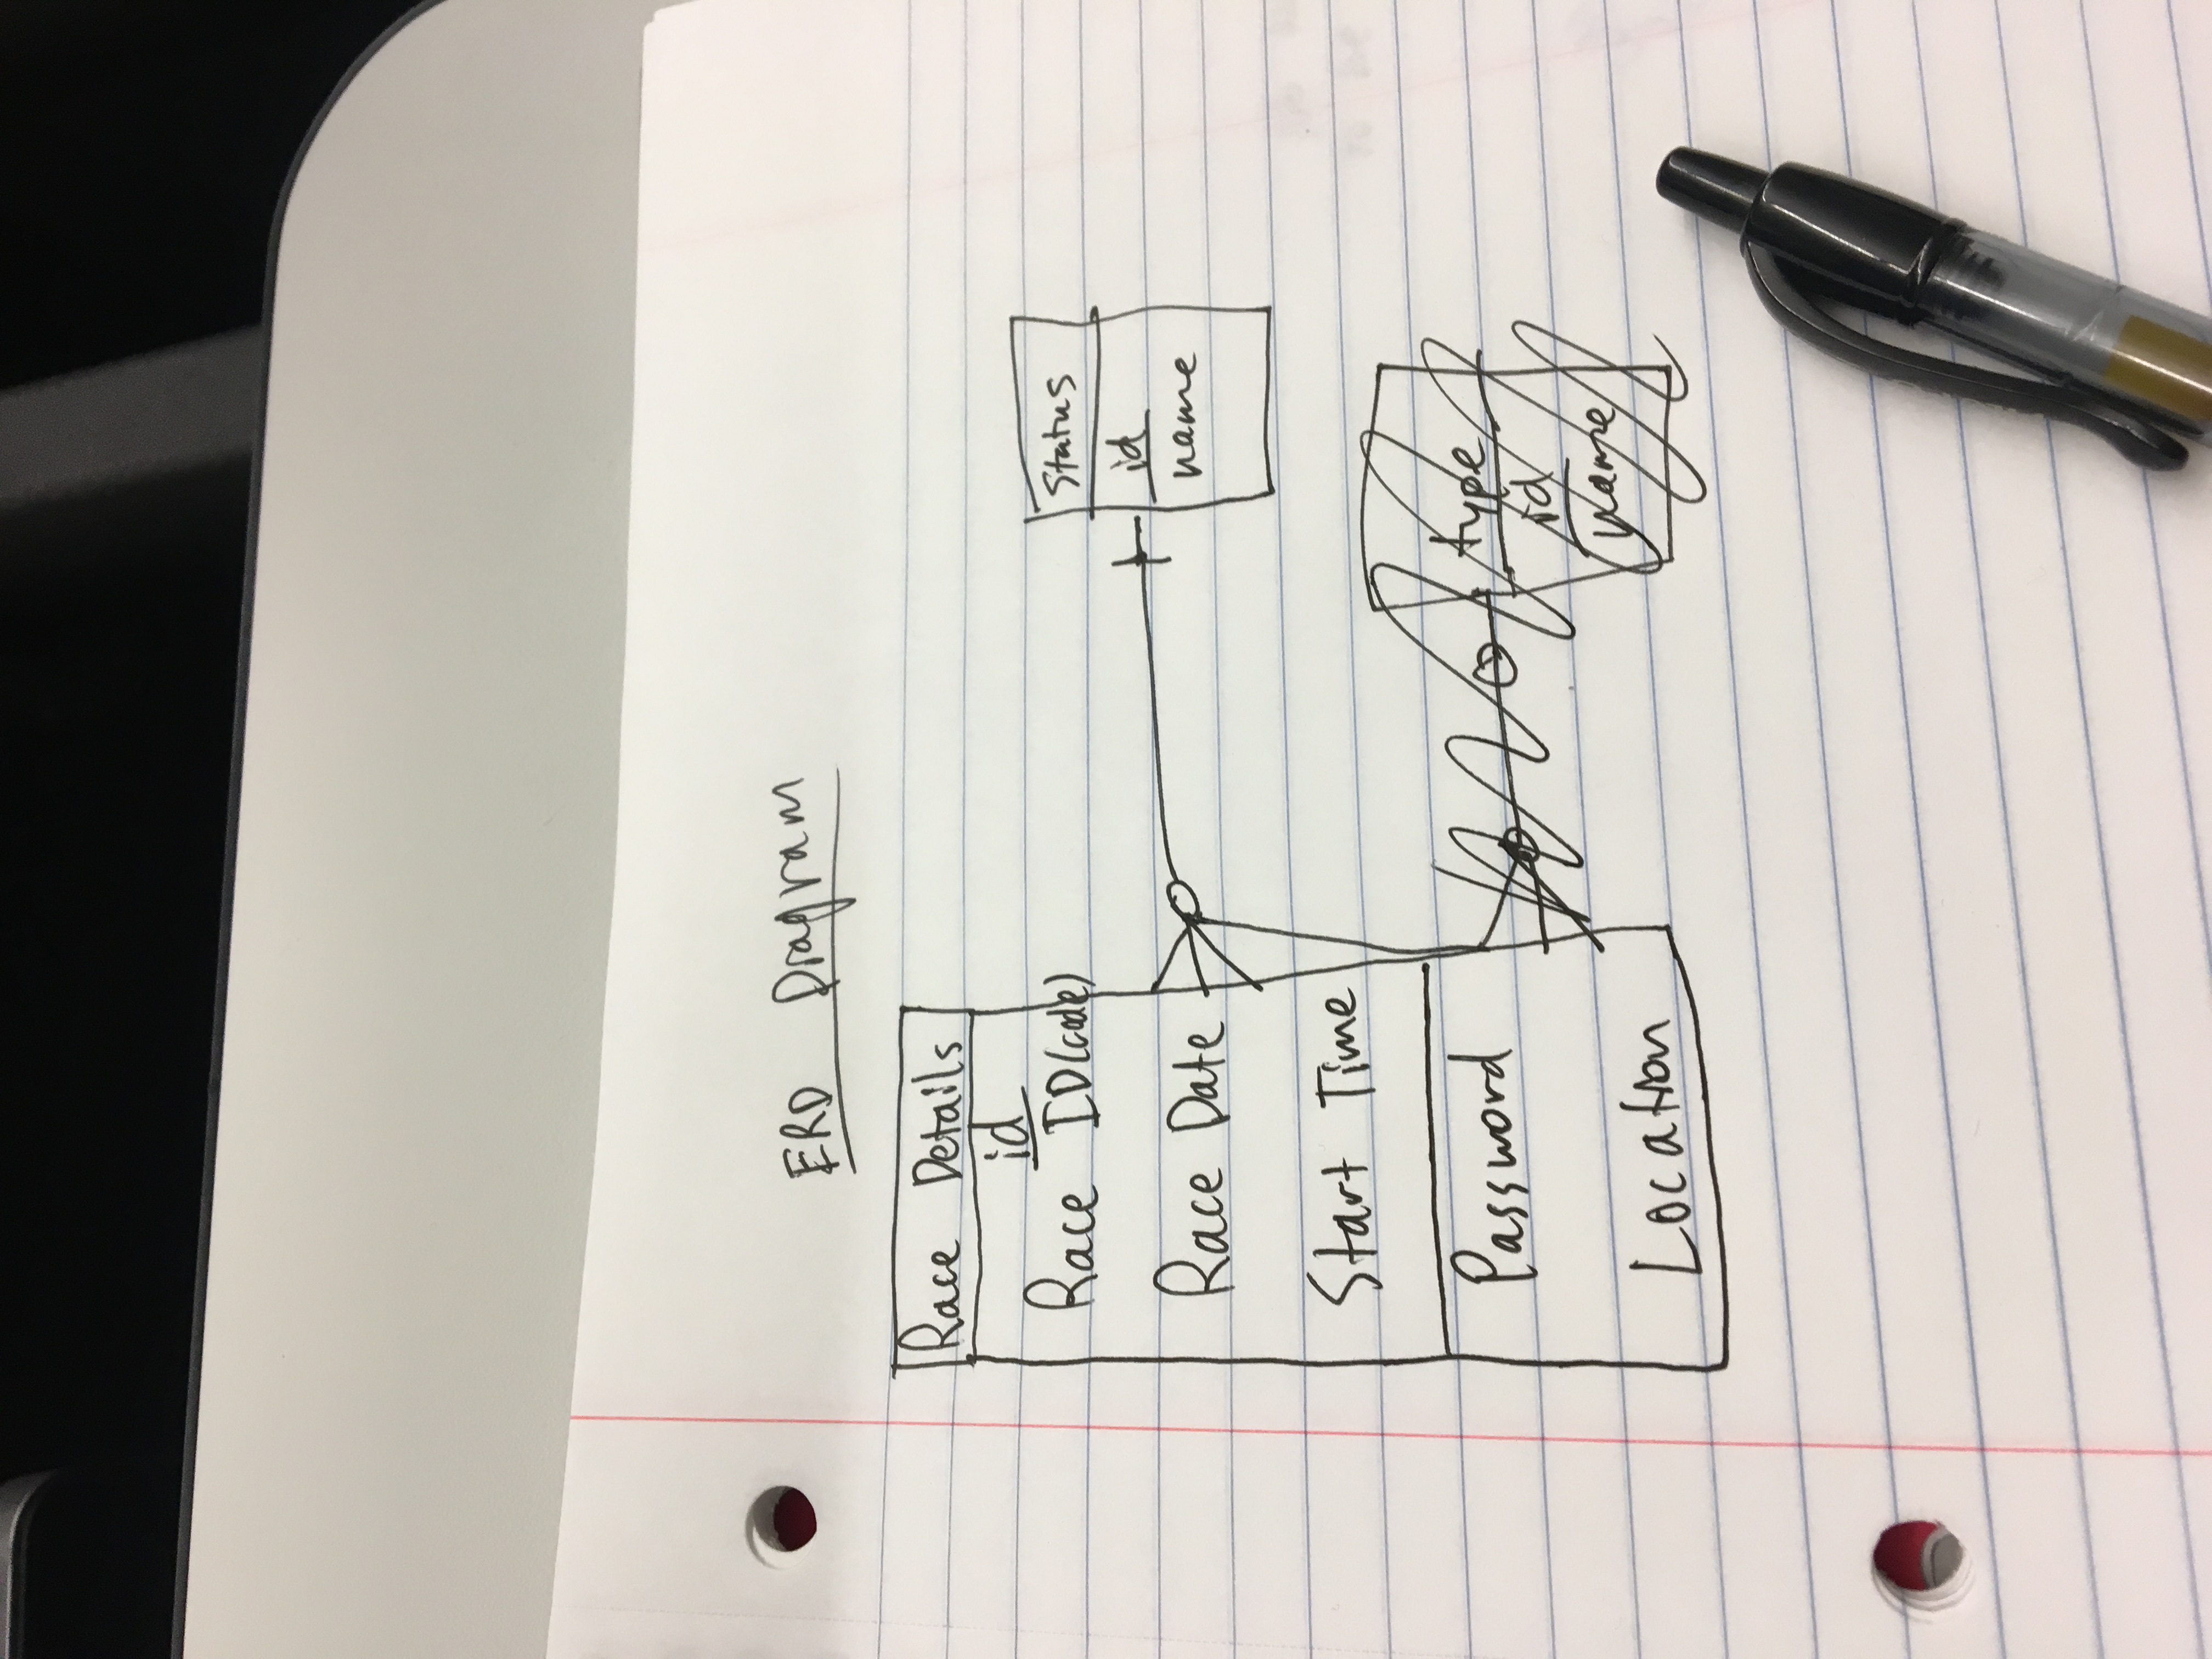 ERD Diagram
Race Details
id
Race ID(code)
Race Date
Start Time
Password
Location
Status
id
name
type
id
name